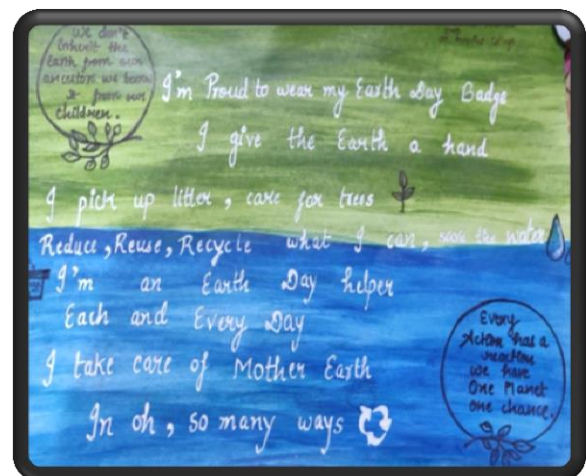 We don't
inherit the
Earth from our
ancestors we
it from our
children.
I'm Proud to wear my Earth Day Badge
I give the Earth a hand
I pick up litter, care for trees
Reduce, Reuse, Recycle what I can, save the water
I'm an Earth Day helper
Each and Every Day
I take care of Mother Earth
In oh, so many ways
Every
Action has a
reaction
we have
One Planet
one chance.